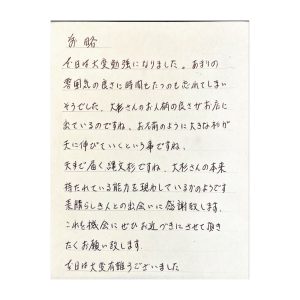 前略
今日は大変勉強になりました。あまりの
雰囲気の良さに時間もたつのも忘れてしまい
そうでした、大杉さんのお人柄の良さがお店に
出ているのですね、お名前のように大きな杉が
天に伸びていくという事ですね、
天まで届く縄文杉ですね、大杉さんの本来
持たれている能力を現わしているかのようです
素晴らしき人との出会いに感謝致します、
これを機会にぜひお近づきにさせて頂き
たくお願い致します、
今日は大変有難うございました